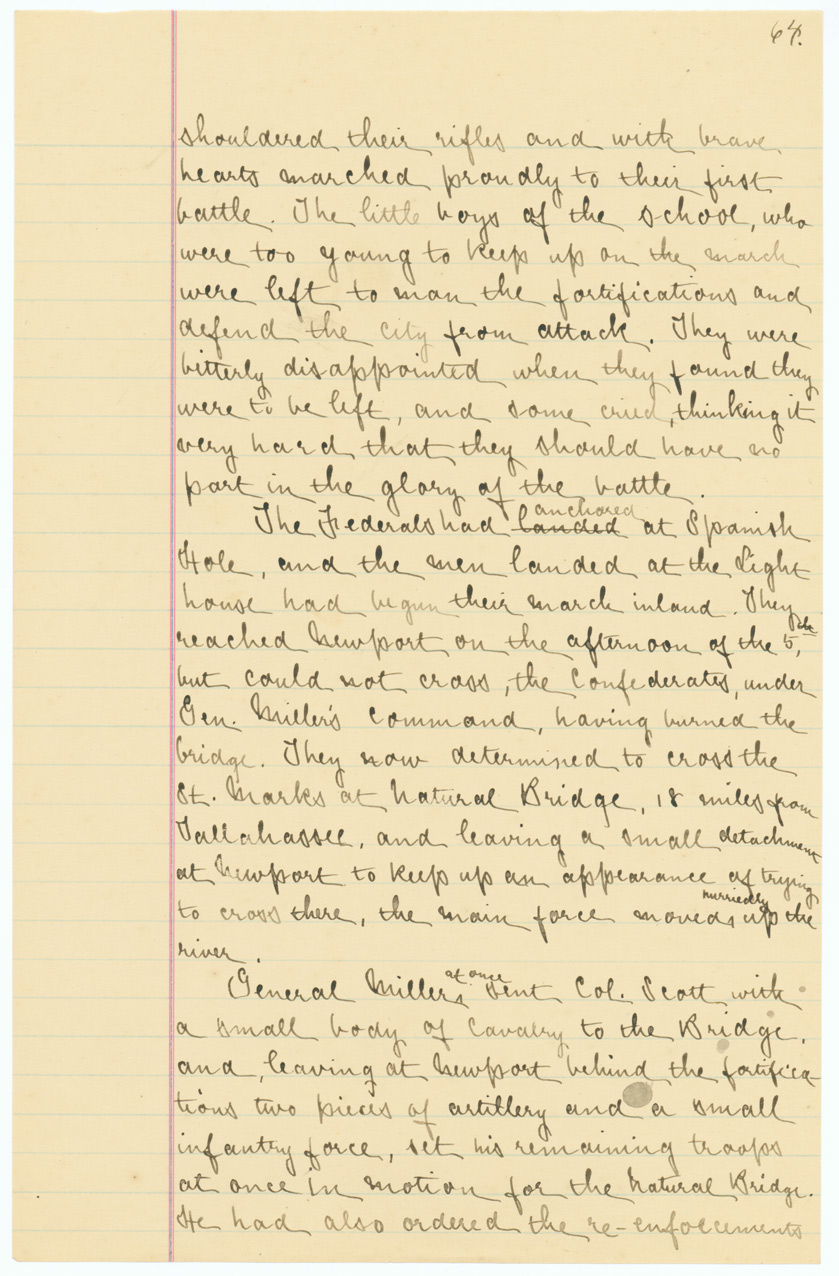 64.
shouldered their rifles and with brave
hearts marched proudly to their first
battle. The little boys of the school, who
were too young to keep up on the march
were left to man the fortifications and
defend the city from attack. They were
bitterly disappointed when they found they
were to be left, and some cried, thinking it
very hard that they should have no
part in the glory of the battle.
anchored
The Federals had landed at Spanish
Hole, and the men landed at the Light
house had begun their march inland. They
reached Newport on the afternoon of the 5th,
but could not cross, the Confederates, under
Gen. Miller's command, having burned the
bridge. They now determined to cross the
St. Marks at Natural Bridge, 18 miles from
Tallahassee, and leaving a small detachment
at Newport to keep up an appearance of trying
hurriedly
to cross there, the main force moved up the
river.
at once
General Miller sent Col. Scott with
a small body of Cavalry to the Bridge,
and, leaving at Newport behind the fortifica-
tions two pieces of artillery and a small
infantry force, set his remaining troops
at once in motion for the Natural Bridge.
He had also ordered the re-enforcements